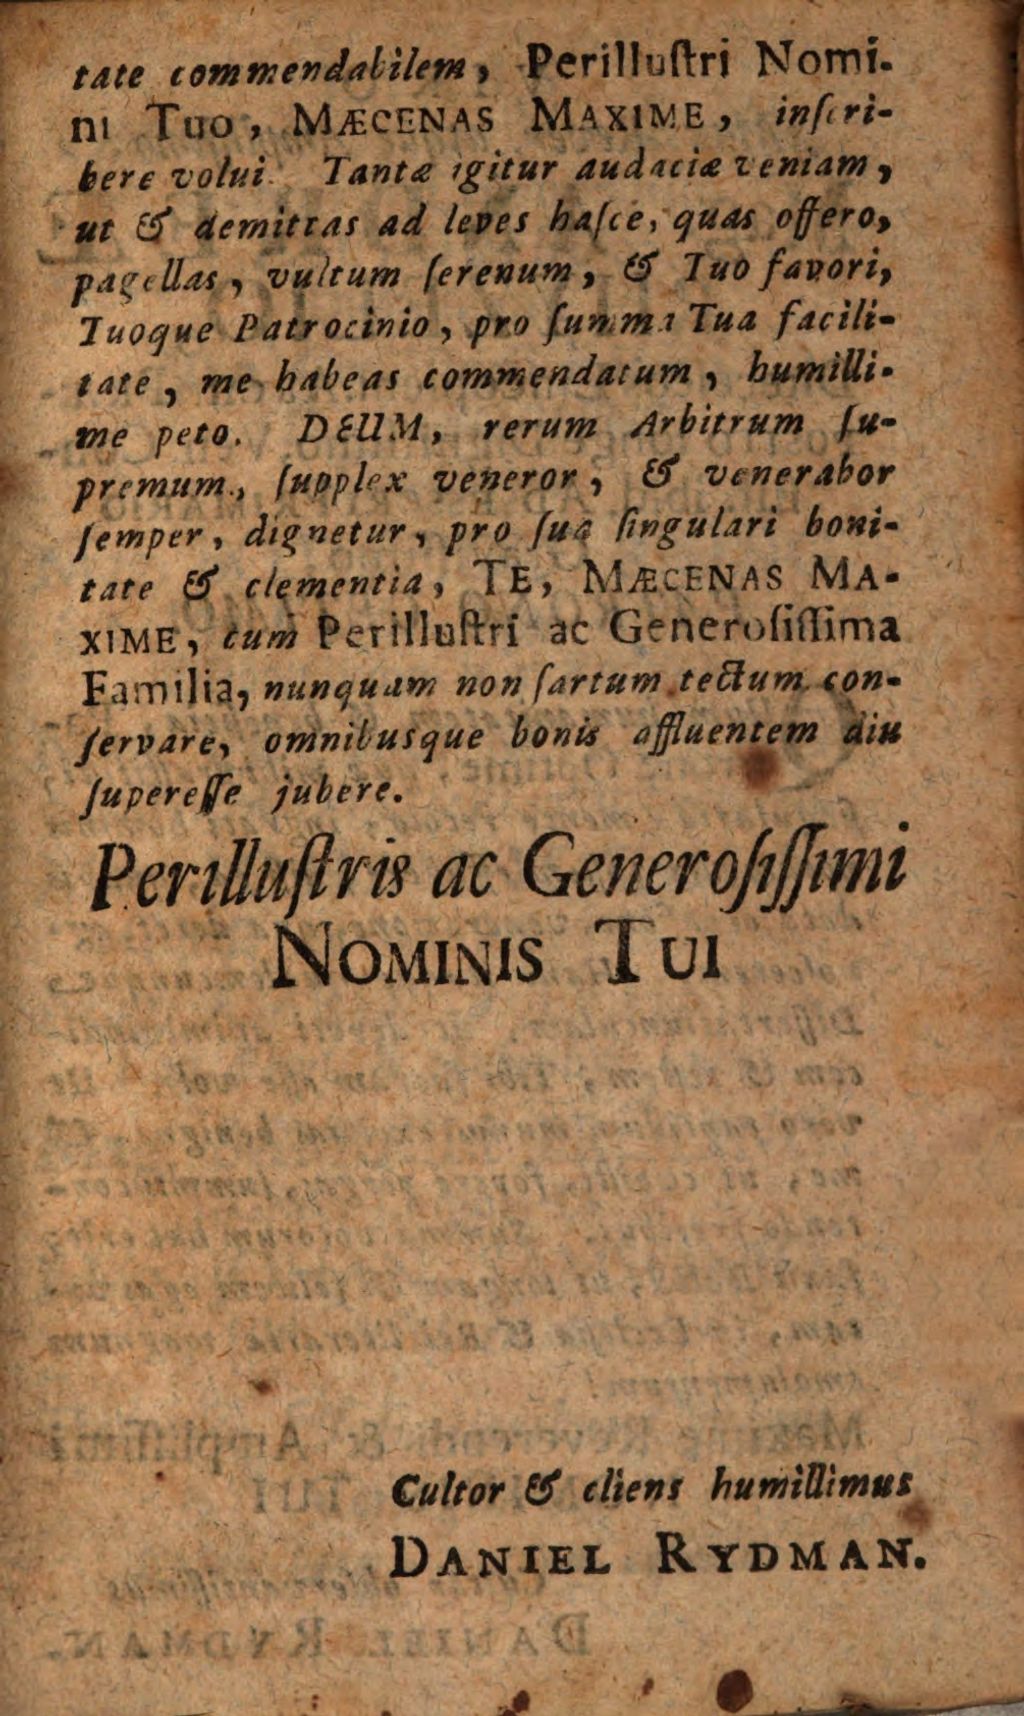 tate commendabilem, Perilluſtri Nomi-
ni Tuo, MÆCENAS MAXIME, inſcri-
bere volui. Tantæ igitur audaciæ veniam,
ut & demittas ad leves haſce, quas offero,
pagellas, vultum ſerenum, & Tuo favori,
Tuoque Patrocinio, pro ſumma Tua facili-
tate, me habeas commendatum, humilli-
me peto. DEUM, rerum Arbitrum ſu-
premum, ſupplex veneror, & venerabor
ſemper, dignetur, pro ſua ſingulari boni-
tate & clementia, TE, MÆCENAS MA-
XIME, cum Perilluſtri ac Generoſiſſima
Familia, nunquam non ſartum tectum con-
ſervare, omnibusque bonis affluentem diu
ſupereſſe jubere.
Perilluſtris ac Generoſiſſimi
NOMINIS TUI
Cultor & cliens humillimus
DANIEL RYDMAN.